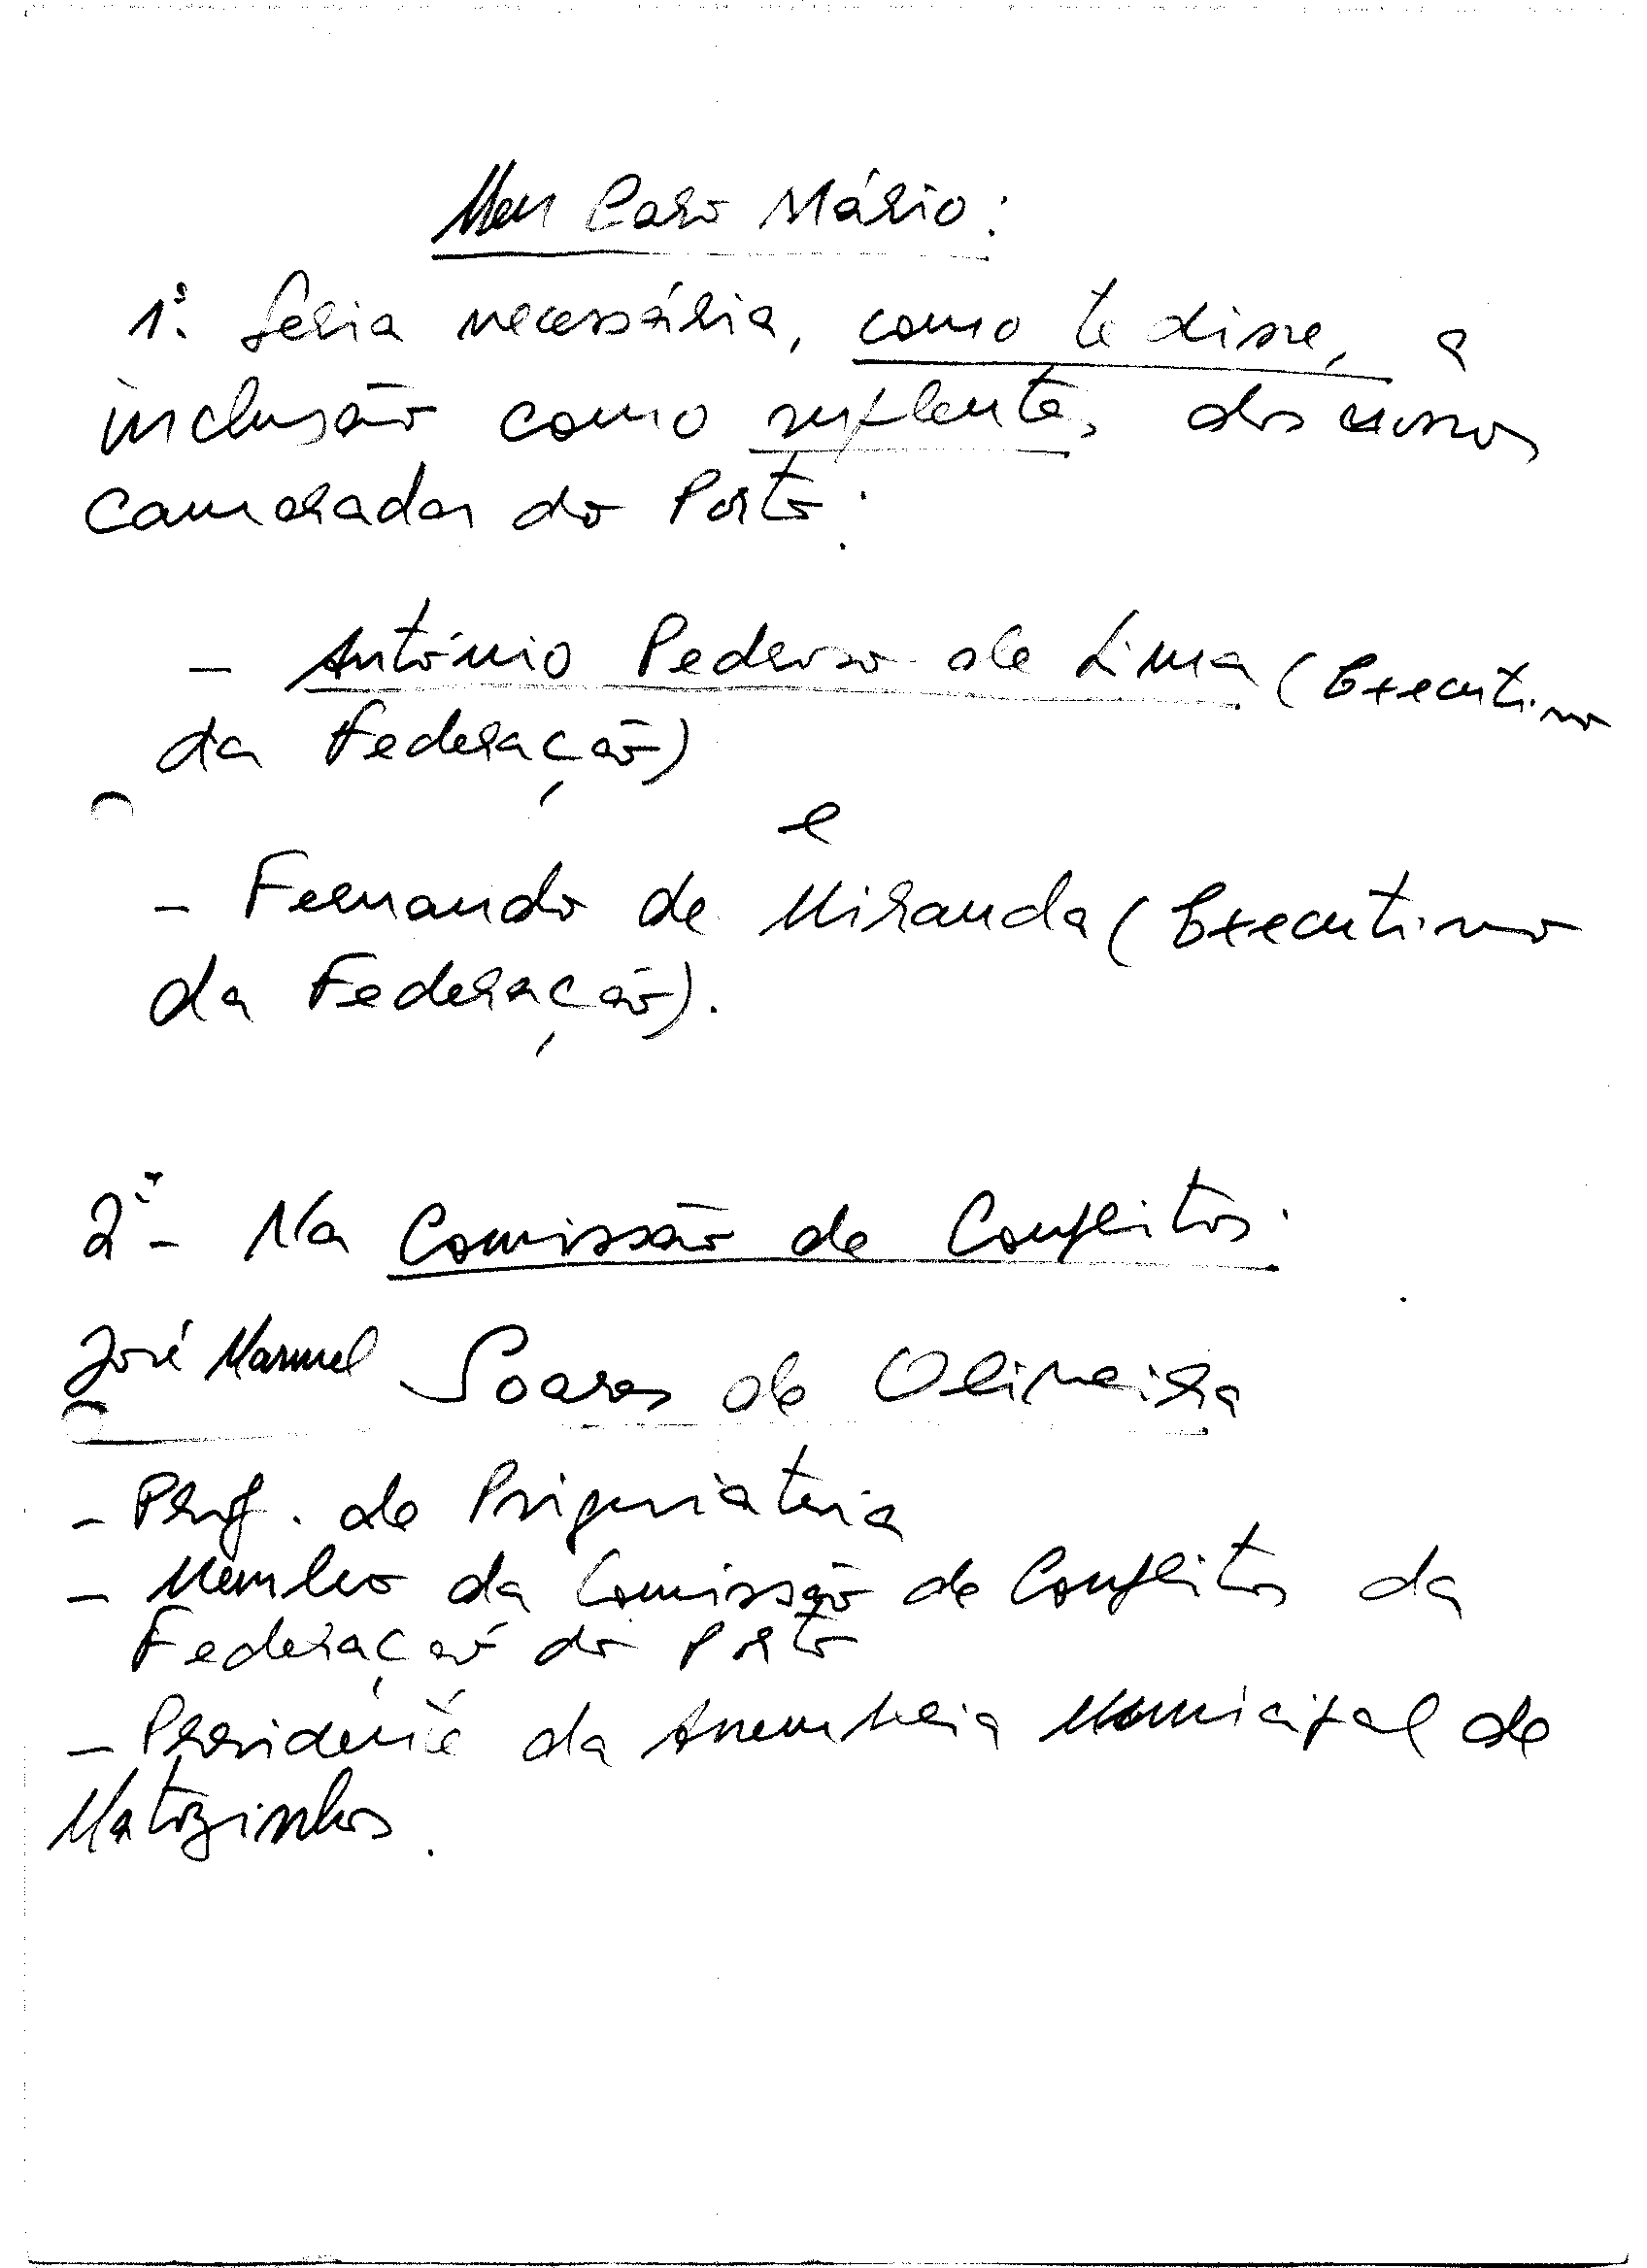 Meu Caro Mário:
1º. Seria necessária, como te disse, a
inclusão como suplentes, dos nossos
camaradas do Porto:
- António Pedroso de Lima (Executivo
da Federação)
e
- Fernando de Miranda (Executivo
da Federação).
2º - Na Comissão de Conflitos.
José Manuel Soares de Oliveira
- Prof. de Psiquiatria
- Membro da Comissão de Conflitos da
Federação do Porto
- Presidente da Assembleia Municipal de
Matozinhos.